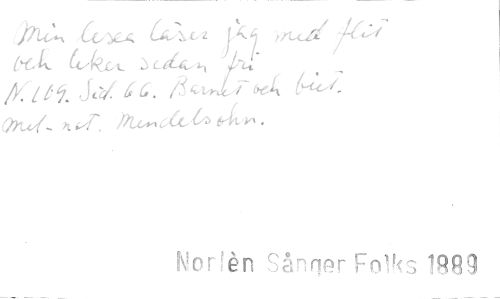 Min lexa läser jag med flit
och leker sedan fri
N. 109. Sid. 66. Barnet och biet.
mel-not. Mendelsohn.
Norlèn Sånger Folks 1889